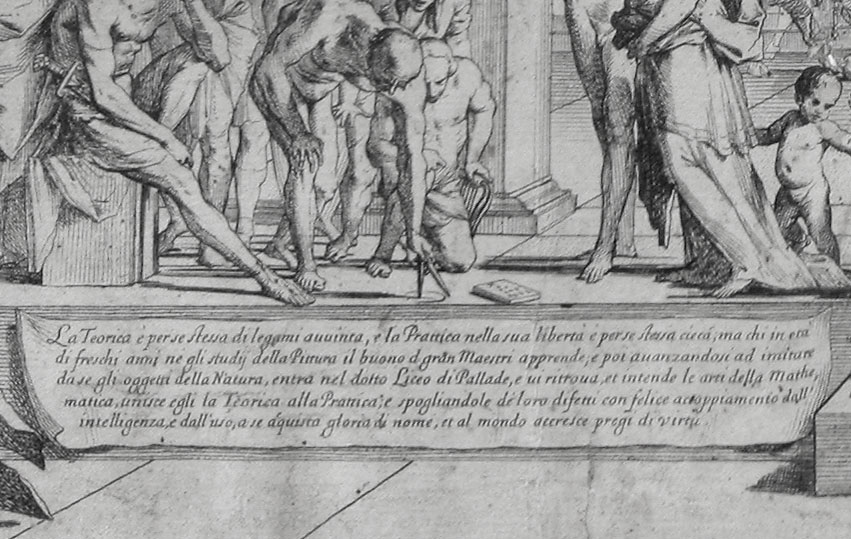 La Teorica è per se stessa di legami auuinta, e la Prattica nella sua libertà è per se stessa cieca; ma chi in età
di freschi anni ne gli studij della Pittura il buono d gran Maestri apprende, e poi auanzandosi ad imitare
da se gli oggetti della Natura, entra nel dotto Liceo di Pallade, e ui ritroua, et intende le arti della Mathe,
matica, unisce egli la Teorica alla Prattica; e spogliandole de loro difetti con felice accoppiamento dall'
intelligenza, e dall'uso, a se aquista gloria di nome, et al mondo accresce pregi di virtù.